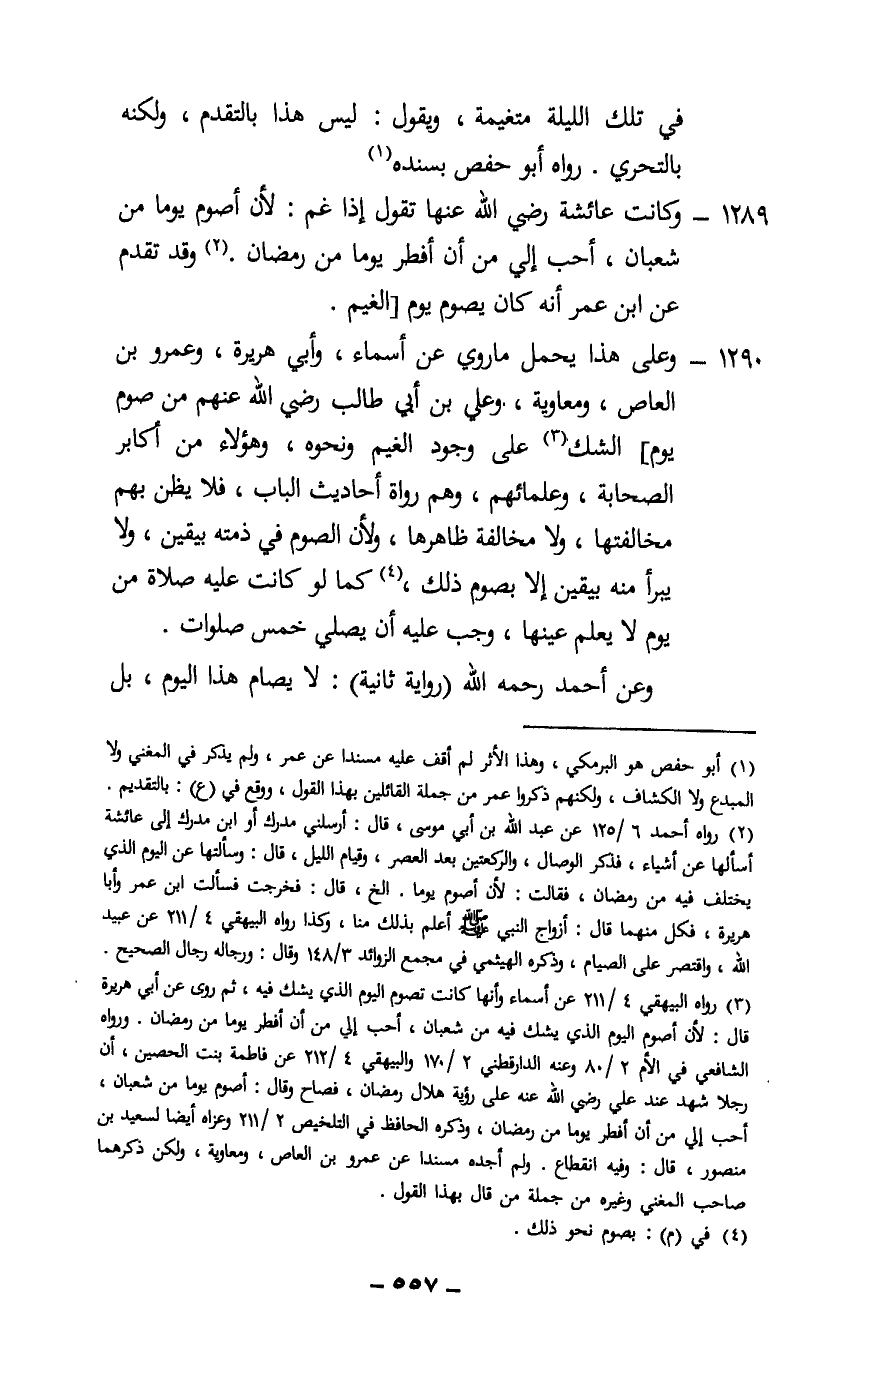 في تلك الليلة متغيمة ، ويقول : ليس هذا بالتقدم ، ولكنه
بالتحري . رواه أبو حفص بسنده(١)
١٢٨٩ – وكانت عائشة رضي الله عنها تقول إذا غم : لأن أصوم يوما من
شعبان ، أحب إلي من أن أفطر يوما من رمضان .(٢) وقد تقدم
عن ابن عمر أنه كان يصوم يوم [الغيم .
١٢٩٠ – وعلى هذا يحمل ماروي عن أسماء ، وأبي هريرة ، وعمرو بن
العاص ، ومعاوية ، وعلي بن أبي طالب رضي الله عنهم من صوم
يوم] الشك(٣) على وجود الغيم ونحوه ، وهؤلاء من أكابر
الصحابة ، وعلمائهم ، وهم رواة أحاديث الباب ، فلا يظن بهم
مخالفتها ، ولا مخالفة ظاهرها ، ولأن الصوم في ذمته بيقين ، ولا
يبرأ منه بيقين إلا بصوم ذلك ،(٤) كما لو كانت عليه صلاة من
يوم لا يعلم عينها ، وجب عليه أن يصلي خمس صلوات .
وعن أحمد رحمه الله (رواية ثانية) : لا يصام هذا اليوم ، بل
(١) أبو حفص هو البرمكي ، وهذا الأثر لم أقف عليه مسندا عن عمر ، ولم يذكر في المغني ولا
المبدع ولا الكشاف ، ولكنهم ذكروا عمر من جملة القائلين بهذا القول ، ووقع في (ع) : بالتقديم .
(٢) رواه أحمد ٦ /١٢٥ عن عبد الله بن أبي موسى ، قال : أرسلني مدرك أو ابن مدرك إلى عائشة
أسألها عن أشياء ، فذكر الوصال ، والركعتين بعد العصر ، وقيام الليل ، قال : وسألتها عن اليوم الذي
يختلف فيه من رمضان ، فقالت : لأن أصوم يوما . الخ ، قال : فخرجت فسألت ابن عمر وأبا
هريرة ، فكل منهما قال : أزواج النبي ﷺ أعلم بذلك منا ، وكذا رواه البيهقي ٤ /٢١١ عن عبيد
الله ، واقتصر على الصيام ، وذكره الهيثمي في مجمع الزوائد ١٤٨/٣ وقال : ورجاله رجال الصحيح .
(٣) رواه البيهقي ٤ /٢١١ عن أسماء وأنها كانت تصوم اليوم الذي يشك فيه ، ثم روى عن أبي هريرة
قال : لأن أصوم اليوم الذي يشك فيه من شعبان ، أحب إلي من أن أفطر يوما من رمضان . ورواه
الشافعي في الأم ٢ /٨٠ وعنه الدارقطني ٢ /١٧٠ والبيهقي ٤ /٢١٢ عن فاطمة بنت الحصين ، أن
رجلا شهد عند علي رضي الله عنه على رؤية هلال رمضان ، فصاح وقال : أصوم يوما من شعبان ،
أحب إلي من أن أفطر يوما من رمضان ، وذكره الحافظ في التلخيص ٢ /٢١١ وعزاه أيضا لسعيد بن
منصور ، قال : وفيه انقطاع . ولم أجده مسندا عن عمرو بن العاص ، ومعاوية ، ولكن ذكرهما
صاحب المغني وغيره من جملة من قال بهذا القول .
(٤) في (م) : بصوم نحو ذلك .
– ٥٥٧ –